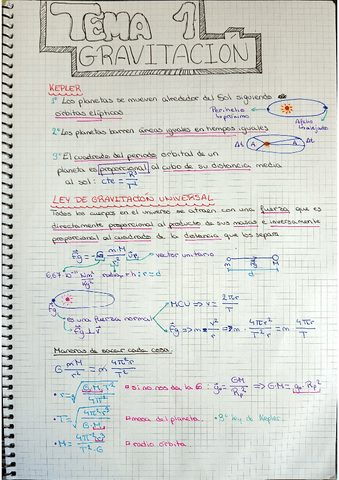 TEMA 1
GRAVITACIÓN
KEPLER
1º Los planetas se mueven alrededor del Sol siguiendo
órbitas elípticas
Perihelio
↳ próximo
Afelio
↳ alejado
2º Los planetas barren áreas iguales en tiempos iguales
Δt A A Δt
3º El cuadrado del periodo orbital de un
planeta es proporcional al cubo de su distancia media
al sol: cte = R³/T²
LEY DE GRAVITACIÓN UNIVERSAL
Todos los cuerpos en el universo se atraen con una fuerza que es
directamente proporcional al producto de sus masas e inversamente
proporcional al cuadrado de la distancia que los separa
Fg = -G m·M/r² ur → vector unitario
6,67·10⁻¹¹ Nm²/kg²
r = d
m Fg M
d
Fg
MCU ⇒ v = 2πr/T
↳ es una fuerza normal
↳ Fg ⊥ v
Fg ⇒ m v²/r ⇒ m 4π²r²/T²r = m 4π²r/T
Maneras de sacar cada cosa:
G m·M/r² = m 4π²r/T²
• r = ∛(G·M·T²/4π²)
si no nos da la G: g₀ = GM/Rp² ⇒ G·M = g₀·Rp²
• T = √(4π²r³/G·M)
masa del planeta
• 3ª ley de Kepler
• M = 4π²r³/T²·G
radio órbita